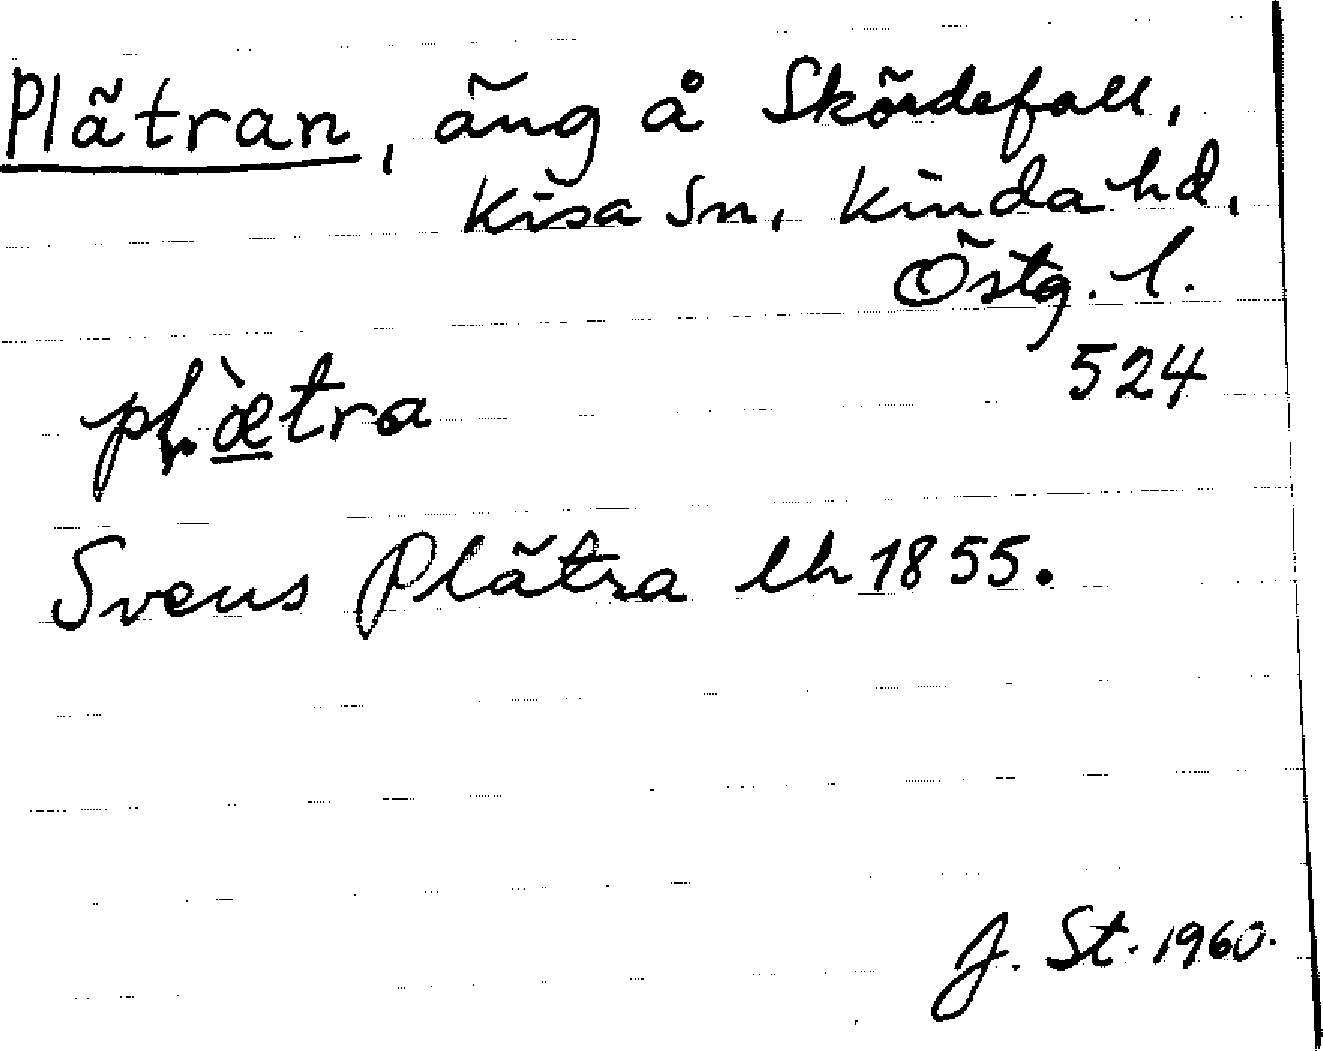 Plätran, äng å Skördefall,
Kisa Sn, Kinda hd,
Östg. l.
524
pl.æ̀tra
Svens Plätra lh 1855.
J. St. 1960.